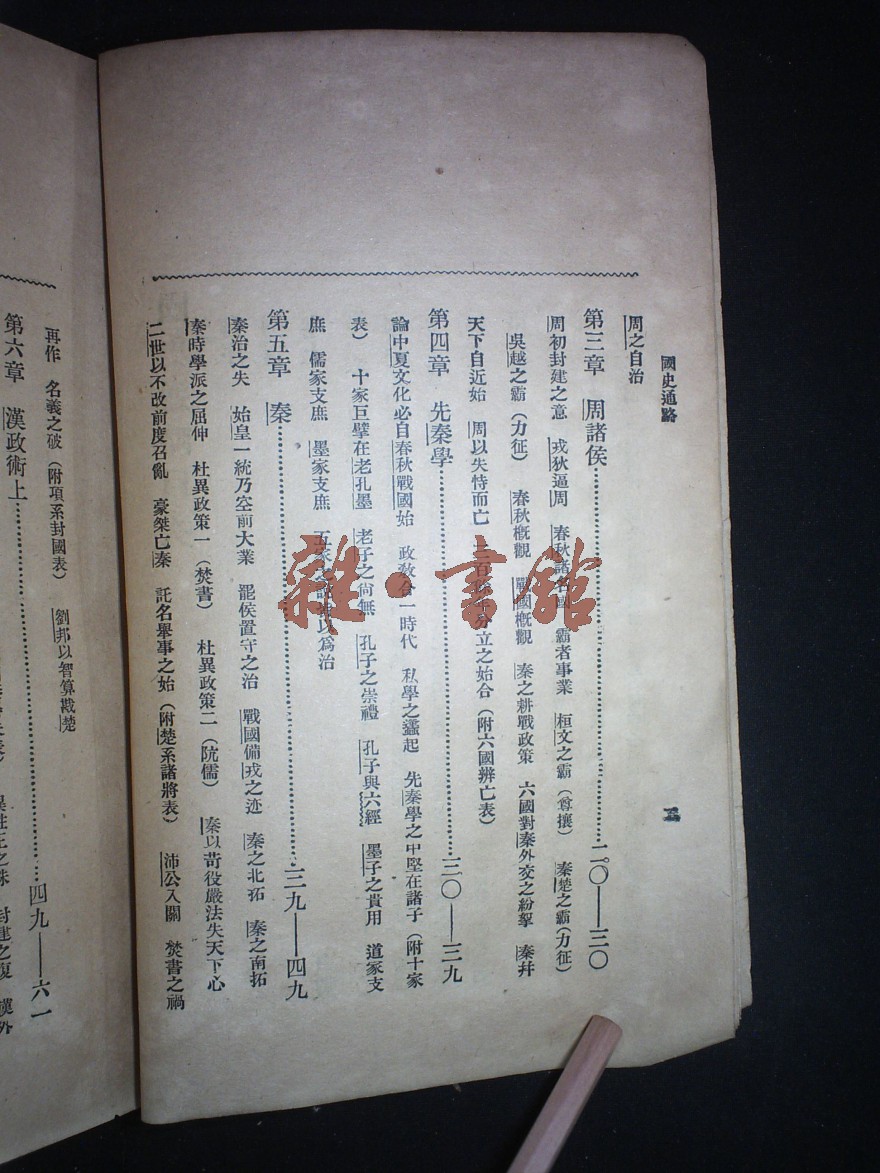 國史通略
周之自治
第三章 周諸侯……二〇——三〇
周初封建之意 戎狄逼周 春秋諸名國 霸者事業 桓文之霸（尊攘） 秦楚之霸（力征）
吳越之霸（力征） 春秋概觀 戰國概觀 秦之耕戰政策 六國對秦外交之紛拏 秦幷
天下自近始 周以失恃而亡 二百 年分立之始合（附六國辨亡表）
第四章 先秦學……三〇——三九
論中夏文化必自春秋戰國始 政敎合一時代 私學之蠭起 先秦學之中堅在諸子（附十家
表） 十家巨擘在老孔墨 老子之尙無 孔子之崇禮 孔子與六經 墨子之貴用 道家支
庶 儒家支庶 墨家支庶 五家 以爲治
第五章 秦……三九——四九
秦治之失 始皇一統乃空前大業 罷侯置守之治 戰國備戎之迹 秦之北拓 秦之南拓
秦時學派之屈伸 杜異政策一（焚書） 杜異政策二（阬儒） 秦以苛役嚴法失天下心
二世以不改前度召亂 豪桀亡秦 託名舉事之始（附楚系諸將表） 沛公入關 焚書之禍
再作 名義之破（附項系封國表） 劉邦以智算戡楚
第六章 漢政術上……四九——六一
異姓王之誅 封建之復 漢外
雜·書館